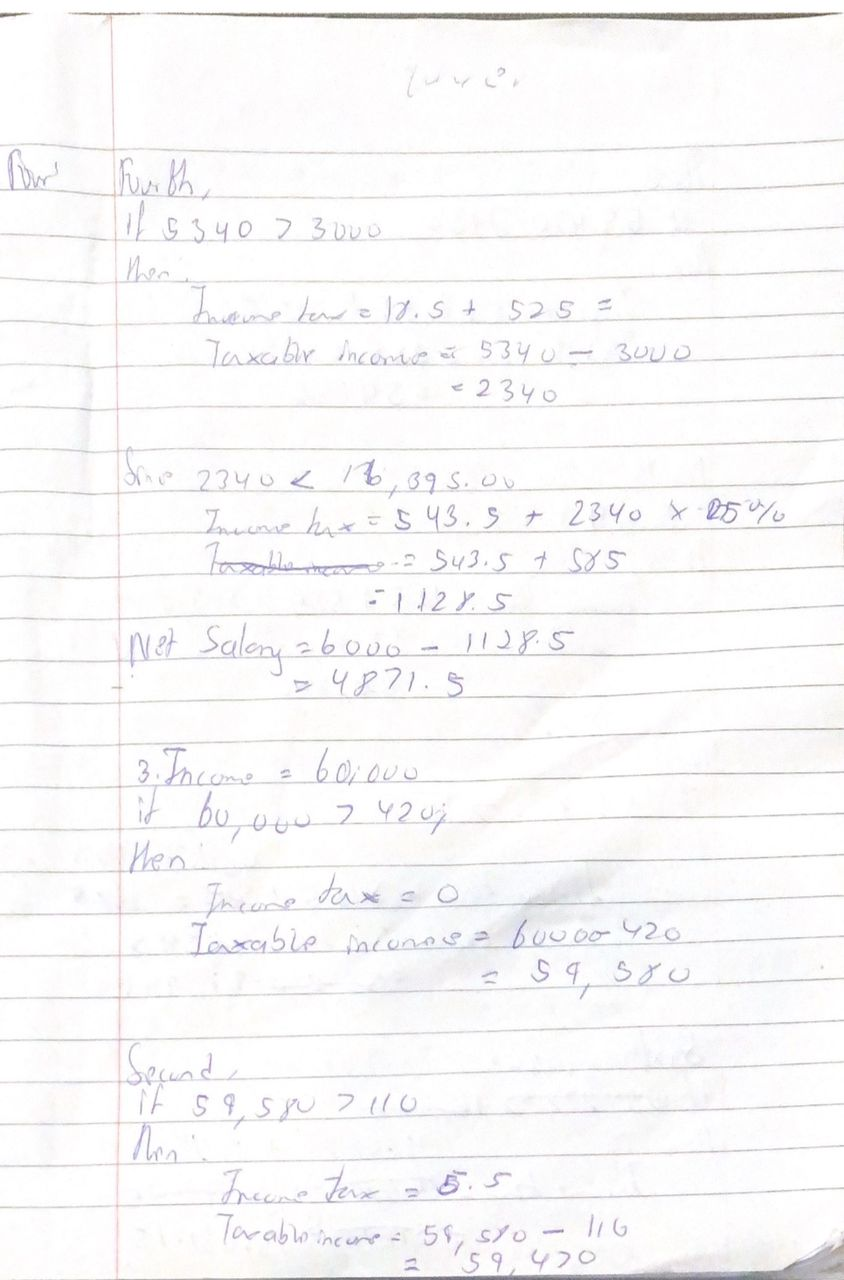 Four
Fourth,
if 5340 > 3000
then.
Income tax = 18.5 + 525 =
Taxable income = 5340 - 3000
= 2340
Sine 2340 < 16,395.00
Income tax = 543.5 + 2340 x 25%
Taxable income = 543.5 + 585
= 1128.5
Net Salary = 6000 - 1128.5
= 4871.5
3. Income = 60,000
if 60,000 > 420;
then
Income tax = 0
Taxable income = 60000 - 420
= 59,580
Second,
if 59,580 > 110
then:
Income tax = 5.5
Taxable income = 59,580 - 110
= 59,470